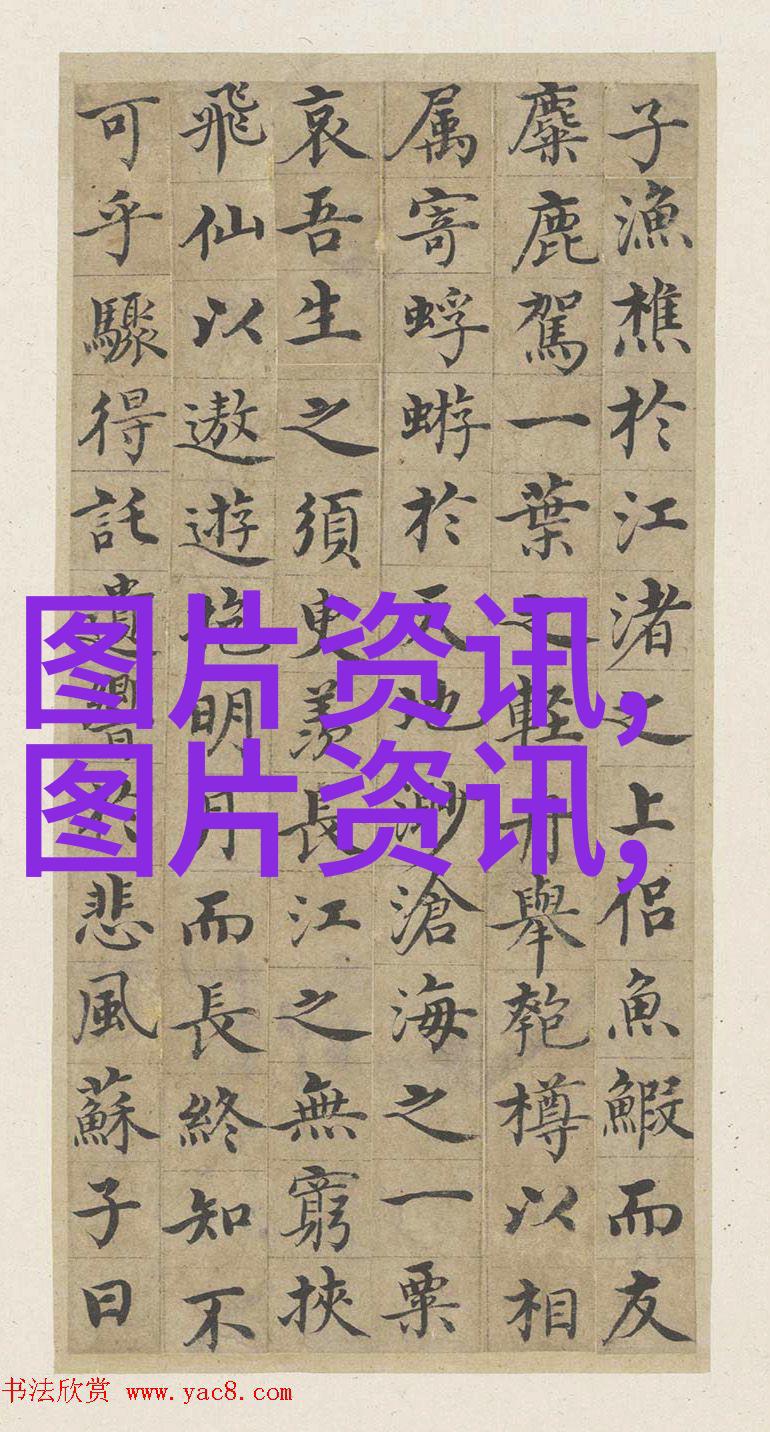 子漁樵於江渚之上侶魚鰕而友
麋鹿駕一葉之輕舟舉匏樽以相
属寄蜉蝣於天地渺滄海之一粟
哀吾生之須臾羨長江之無窮挾
飛仙以遨遊抱明月而長終知不
可乎驟得託遺響於悲風蘇子曰
图片资讯,
图片资讯,
书法欣赏 www.yac8.com